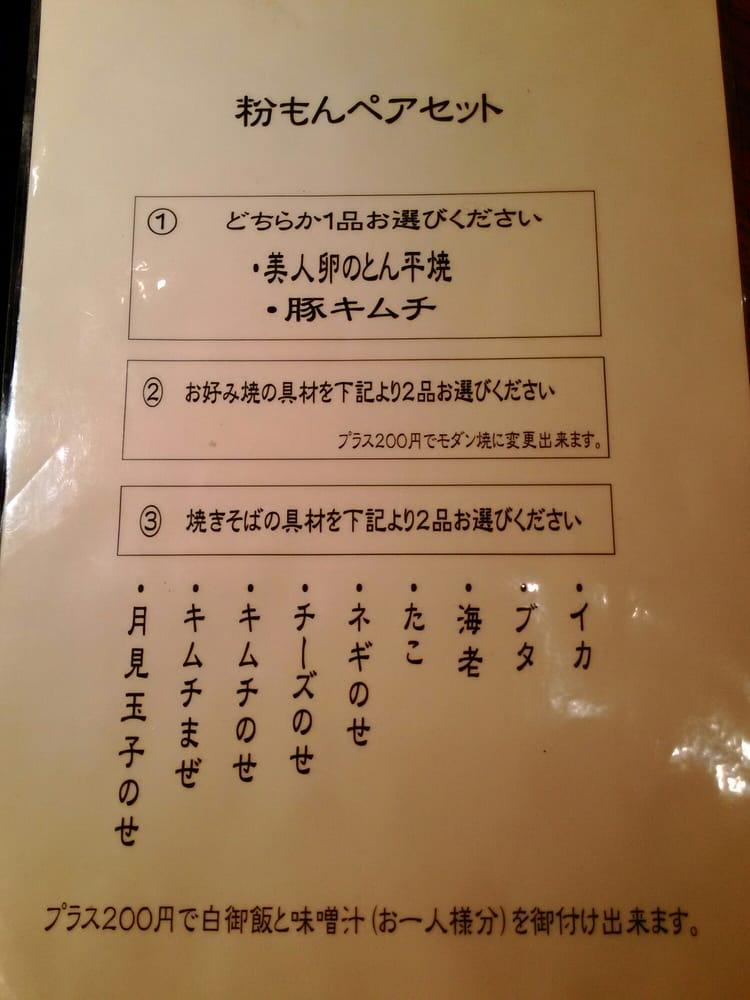 粉もんペアセット
① どちらか1品お選びください
・美人卵のとん平焼
・豚キムチ
② お好み焼の具材を下記より2品お選びください
プラス200円でモダン焼に変更出来ます。
③ 焼きそばの具材を下記より2品お選びください
・イカ
・ブタ
・海老
・たこ
・ネギのせ
・チーズのせ
・キムチのせ
・キムチまぜ
・月見玉子のせ
プラス200円で白御飯と味噌汁(お一人様分)を御付け出来ます。